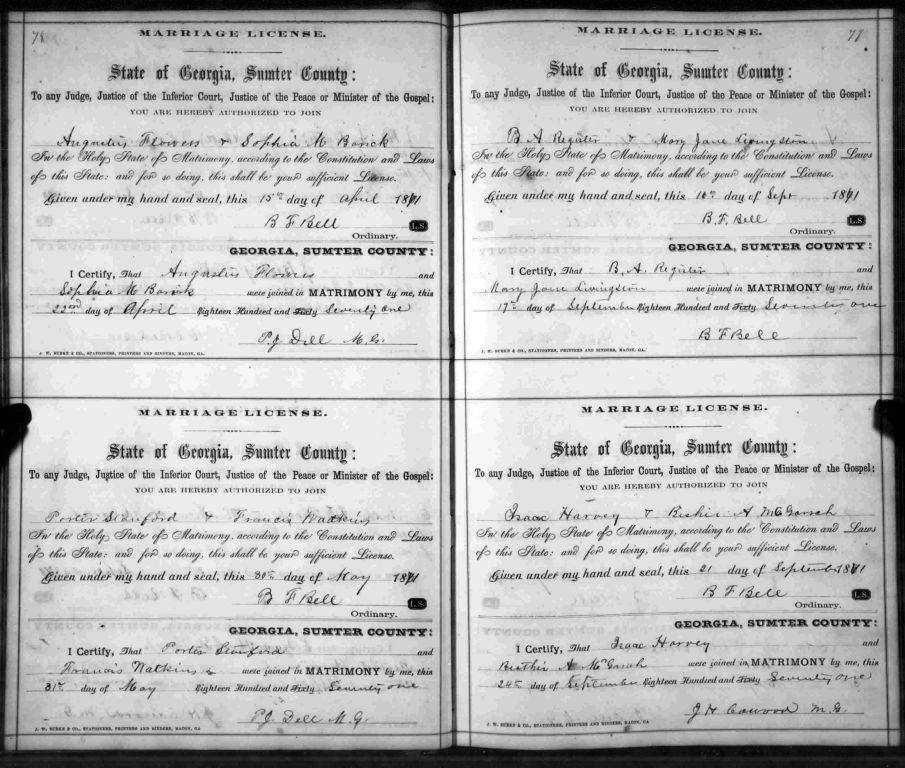 78
MARRIAGE LICENSE.
State of Georgia, Sumter County:
To any Judge, Justice of the Inferior Court, Justice of the Peace or Minister of the Gospel:
YOU ARE HEREBY AUTHORIZED TO JOIN
Augustus Flowers & Sophia M Barick
In the Holy State of Matrimony, according to the Constitution and Laws
of this State: and for so doing, this shall be your sufficient License.
Given under my hand and seal, this 15th day of April 1871
B F Bell L.S.
Ordinary.
GEORGIA, SUMTER COUNTY:
I Certify, That Augustus Flowers and
Sophia M Barick were joined in MATRIMONY by me, this
22nd day of April Eighteen Hundred and Sixty Seventy one
P.J. Dell M.G.
J. W. BURKE & CO., STATIONERS, PRINTERS AND BINDERS, MACON, GA.
MARRIAGE LICENSE.
State of Georgia, Sumter County:
To any Judge, Justice of the Inferior Court, Justice of the Peace or Minister of the Gospel:
YOU ARE HEREBY AUTHORIZED TO JOIN
Porter Stanford & Francis Watkins
In the Holy State of Matrimony, according to the Constitution and Laws
of this State: and for so doing, this shall be your sufficient License.
Given under my hand and seal, this 30th day of May 1871
B F Bell L.S.
Ordinary.
GEORGIA, SUMTER COUNTY:
I Certify, That Porter Stanford and
Francis Watkins were joined in MATRIMONY by me, this
31st day of May Eighteen Hundred and Sixty Seventy one
P.J. Dell M.G.
J. W. BURKE & CO., STATIONERS, PRINTERS AND BINDERS, MACON, GA.
77
MARRIAGE LICENSE.
State of Georgia, Sumter County:
To any Judge, Justice of the Inferior Court, Justice of the Peace or Minister of the Gospel:
YOU ARE HEREBY AUTHORIZED TO JOIN
B A Register & Mary Jane Livingston
In the Holy State of Matrimony, according to the Constitution and Laws
of this State: and for so doing, this shall be your sufficient License.
Given under my hand and seal, this 16th day of Sept 1871
B. F. Bell L.S.
Ordinary.
GEORGIA, SUMTER COUNTY:
I Certify, That B. A. Register and
Mary Jane Livingston were joined in MATRIMONY by me, this
17th day of September Eighteen Hundred and Sixty Seventy one
B F Bell
J. W. BURKE & CO., STATIONERS, PRINTERS AND BINDERS, MACON, GA.
MARRIAGE LICENSE.
State of Georgia, Sumter County:
To any Judge, Justice of the Inferior Court, Justice of the Peace or Minister of the Gospel:
YOU ARE HEREBY AUTHORIZED TO JOIN
Isaac Harvey & A McGarrah
In the Holy State of Matrimony, according to the Constitution and Laws
of this State: and for so doing, this shall be your sufficient License.
Given under my hand and seal, this 21 day of September 1871
B F Bell L.S.
Ordinary.
GEORGIA, SUMTER COUNTY:
I Certify, That Isaac Harvey and
A McGarah were joined in MATRIMONY by me, this
24th day of September Eighteen Hundred and Sixty Seventy one
J H Cawood M.G.
J. W. BURKE & CO., STATIONERS, PRINTERS AND BINDERS, MACON, GA